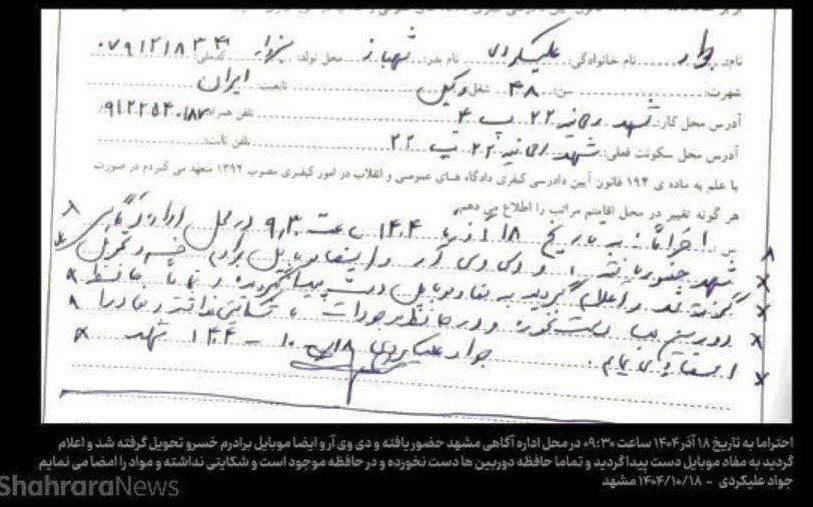 نام: جواد نام خانوادگی: علیکردی نام پدر: شهباز محل تولد: سبزوار کدملی:
شهرت: سن: ۴۸ شغل: وکیل تابعیت: ایران
آدرس محل کار: مشهد ۲۲ پ ۴ تلفن همراه:
آدرس محل سکونت فعلی: مشهد ۲۲ پ ۲۲ تلفن ثابت:
با علم به ماده ی ۱۹۴ قانون آیین دادرسی کیفری دادگاه های عمومی و انقلاب در امور کیفری مصوب ۱۳۹۲ متعهد می گردم در صورت
هر گونه تغییر در محل اقامتم مراتب را اطلاع می دهم.
احتراماً به تاریخ ۱۸ آذر ۱۴۰۴ ساعت ۹:۳۰ در محل اداره آگاهی
مشهد حضور یافته و دی وی آر و ایضا موبایل برادرم خسرو تحویل
گرفته شد و اعلام گردید به مفاد موبایل دست پیدا گردیده و تماماً حافظه
دوربین ها دست نخورده و در حافظه موجود است و شکایتی نداشته و مواد را
امضا می نمایم. جواد علیکردی ۱۸-۱۰-۱۴۰۴ مشهد
احتراما به تاریخ ۱۸ آذر ۱۴۰۴ ساعت ۰۹:۳۰ در محل اداره آگاهی مشهد حضور یافته و دی وی آر و ایضا موبایل برادرم خسرو تحویل گرفته شد و اعلام
گردید به مفاد موبایل دست پیدا گردید و تماما حافظه دوربین ها دست نخورده و در حافظه موجود است و شکایتی نداشته و مواد را امضا می نمایم
جواد علیکردی - ۱۴۰۴/۱۰/۱۸ مشهد
ShahraraNews